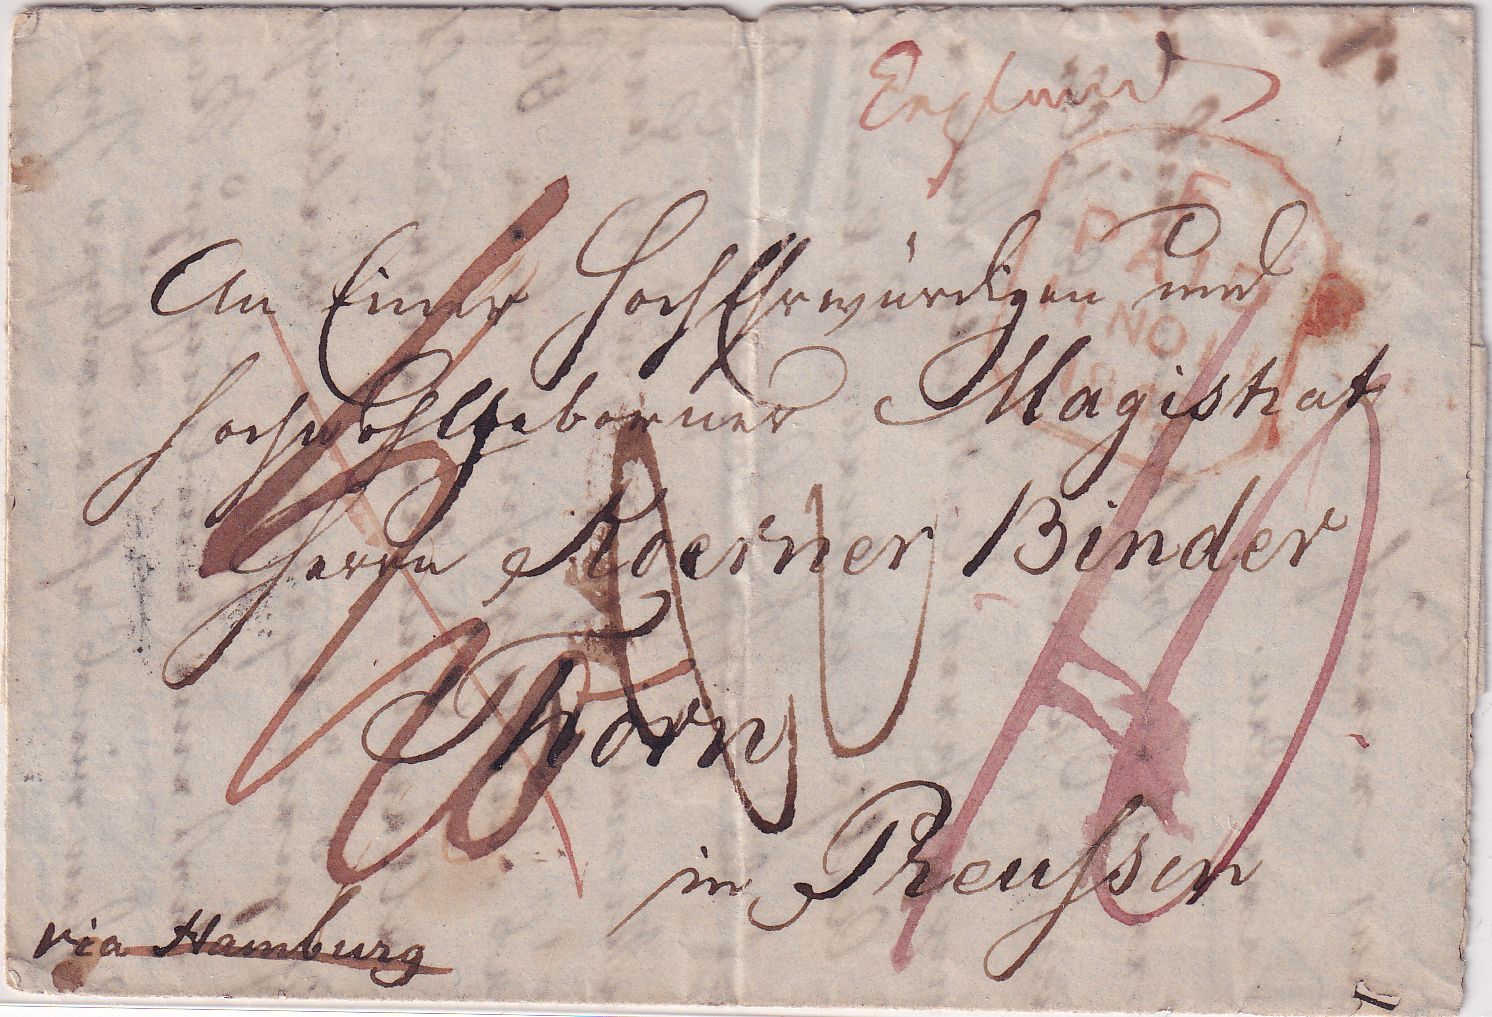 England
F
PAID
NO
An Einen HochEhrwürdigen und
Hochwohlgeborner Magistrat
Herrn Koerner Binder
Thorn
in Preussen
via Hamburg